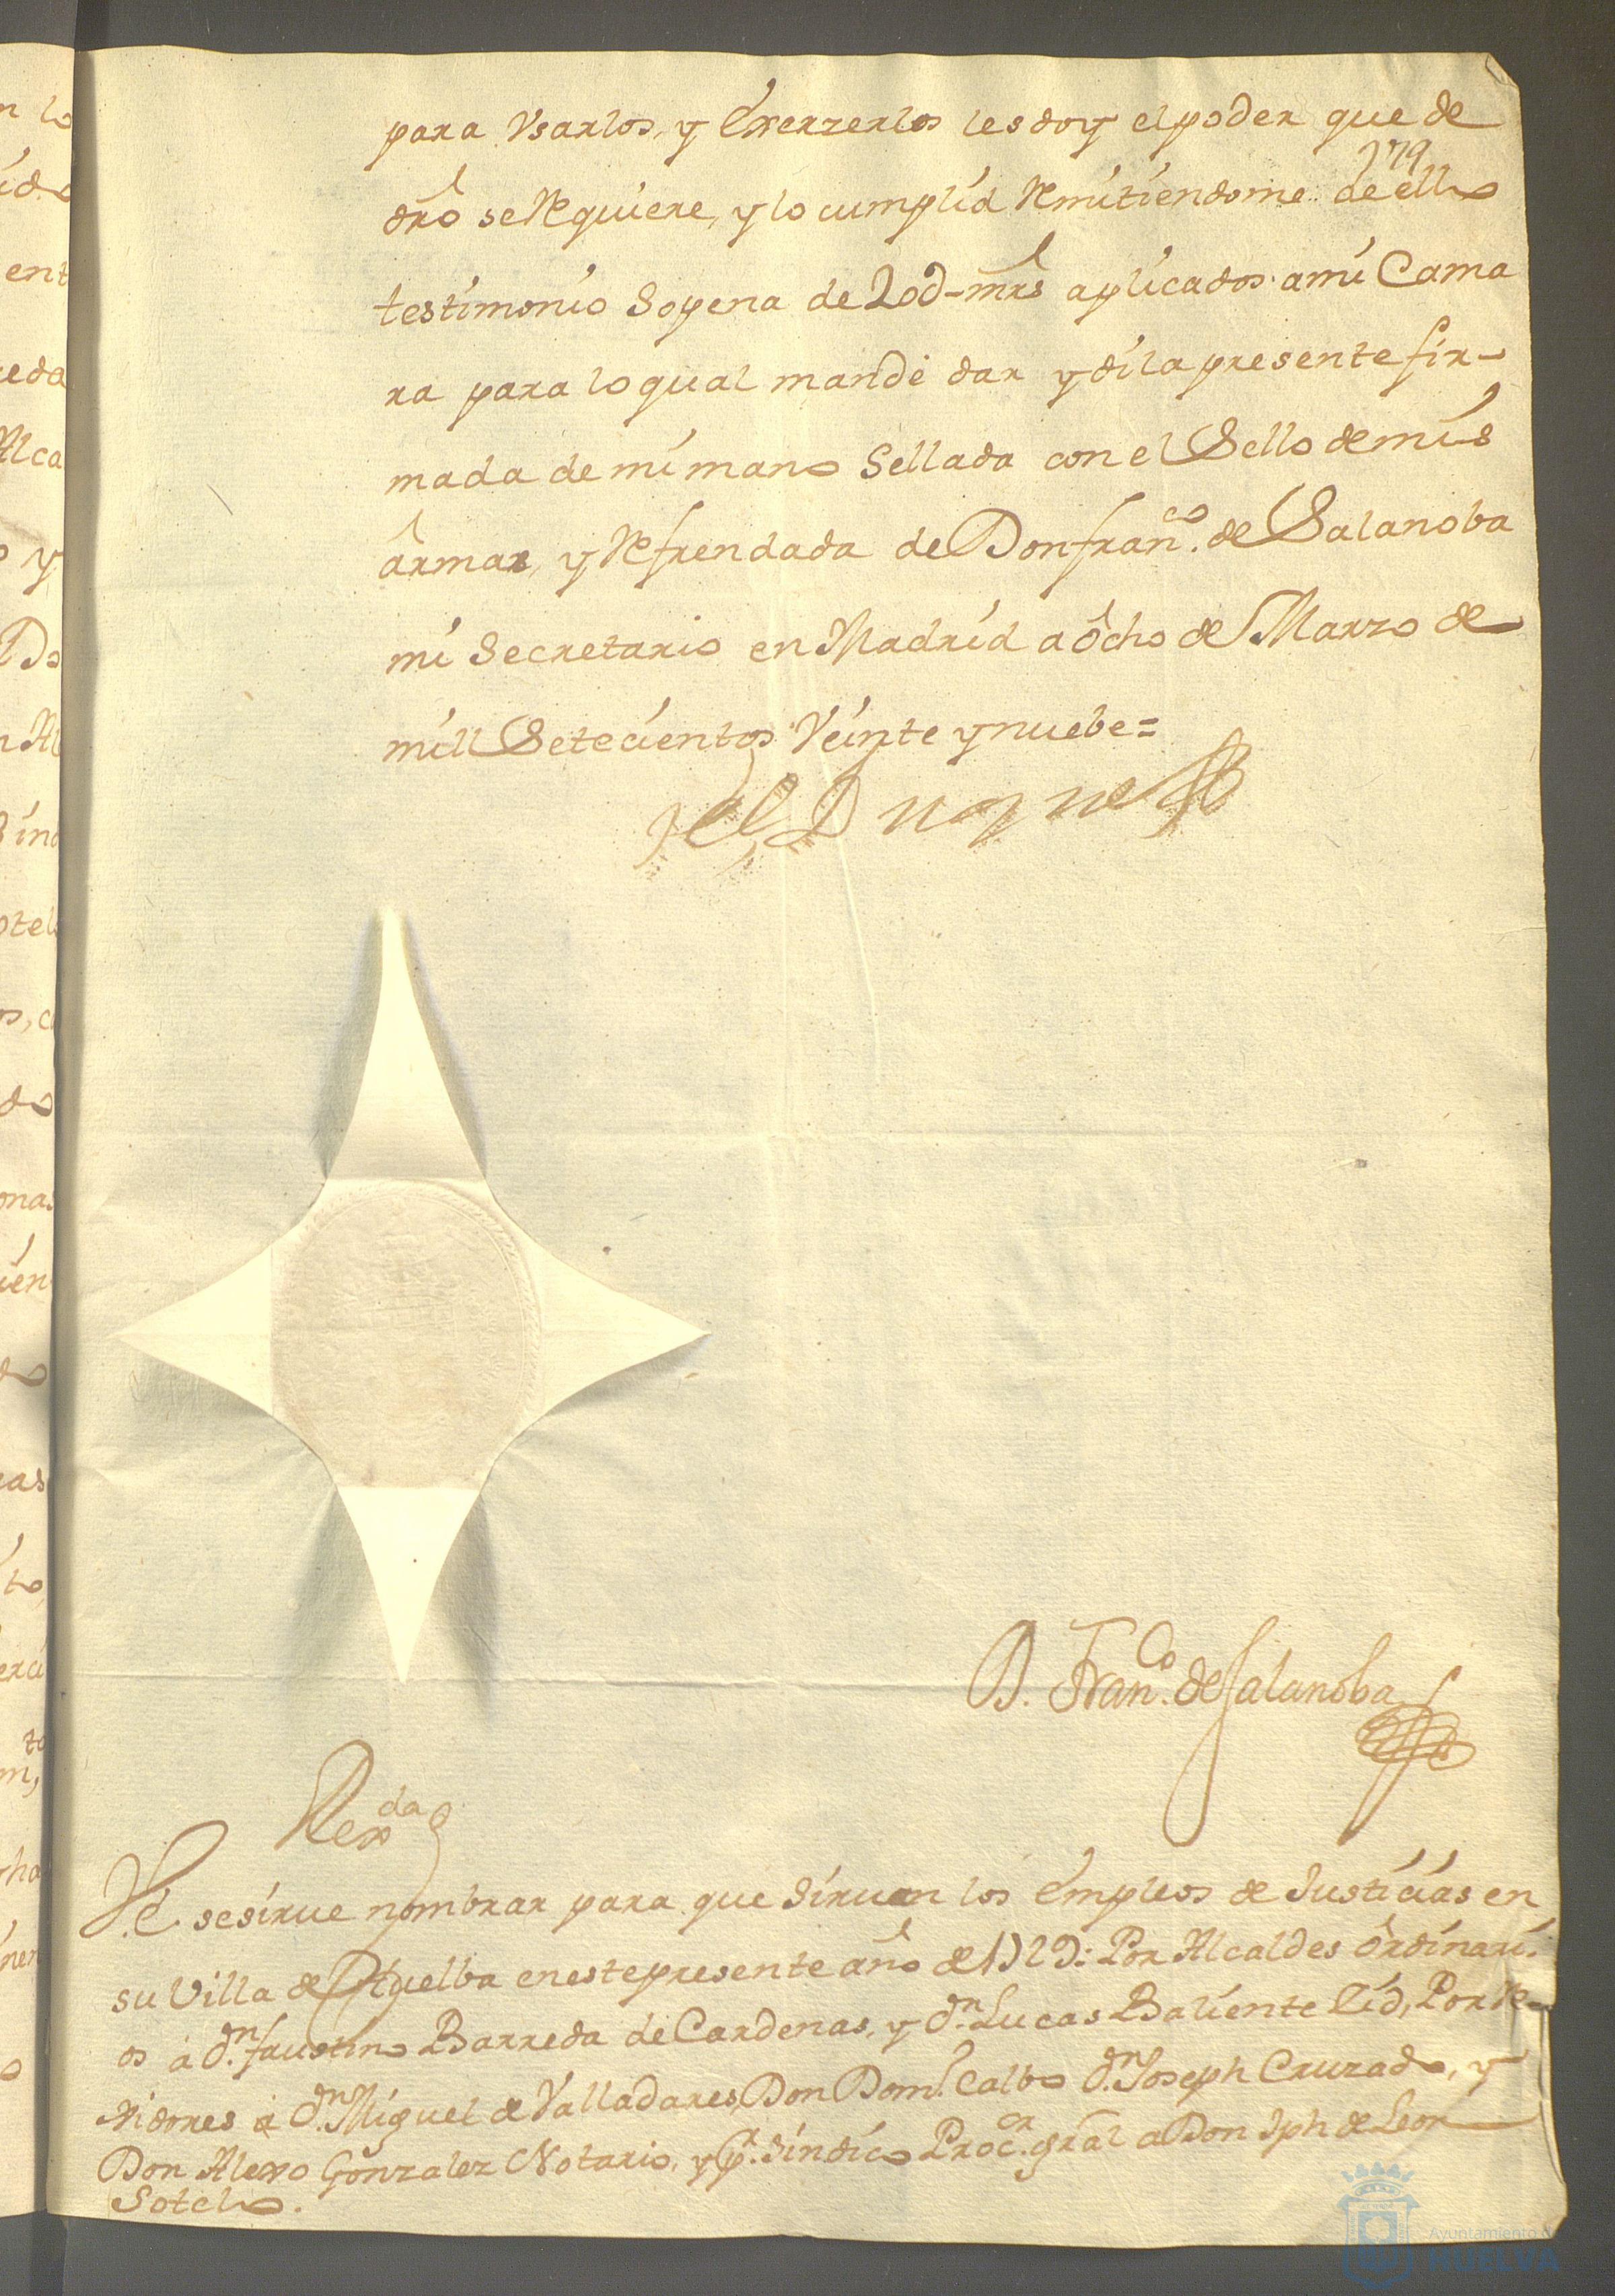 para Vsarlos, y Exerzerlos les doy el poder que de
179
dro̅ se Requiere, y lo cumplid Remitiendome de ello
testimonio Sopena de 20d-mrs aplicados a mi Cama
ra para lo qual mandè dar y di la presente fir-
mada de mi mano Sellada con el Sello de mis
ârmas, y Refrendada de Don fran.co de Salanoba
mi Secretario en Madrid a ôcho de Marzo de
mill Setecientos Veinte y nuebe=
el Duque
D. Fran.co de Salanoba
Rex.da
V.E. se sirue nombrar para que siruan los Empleos de Justicias en
su Villa de Huelba en este presente año de 1729: Por Alcaldes ôrdinari
os à d.n faustino Barreda de Cardenas, y d.n Lucas Baliente Cid, Por Re-
xidores à d.n Miguel de Valladares, Don Dom.o Calbo d.n Joseph Cruzado, y
Don Alexo Gonzalez Notario, y p.r Sindico Proc.or gral a Don Jph de Leon
Sotelo.
Ayuntamiento de
HUELVA